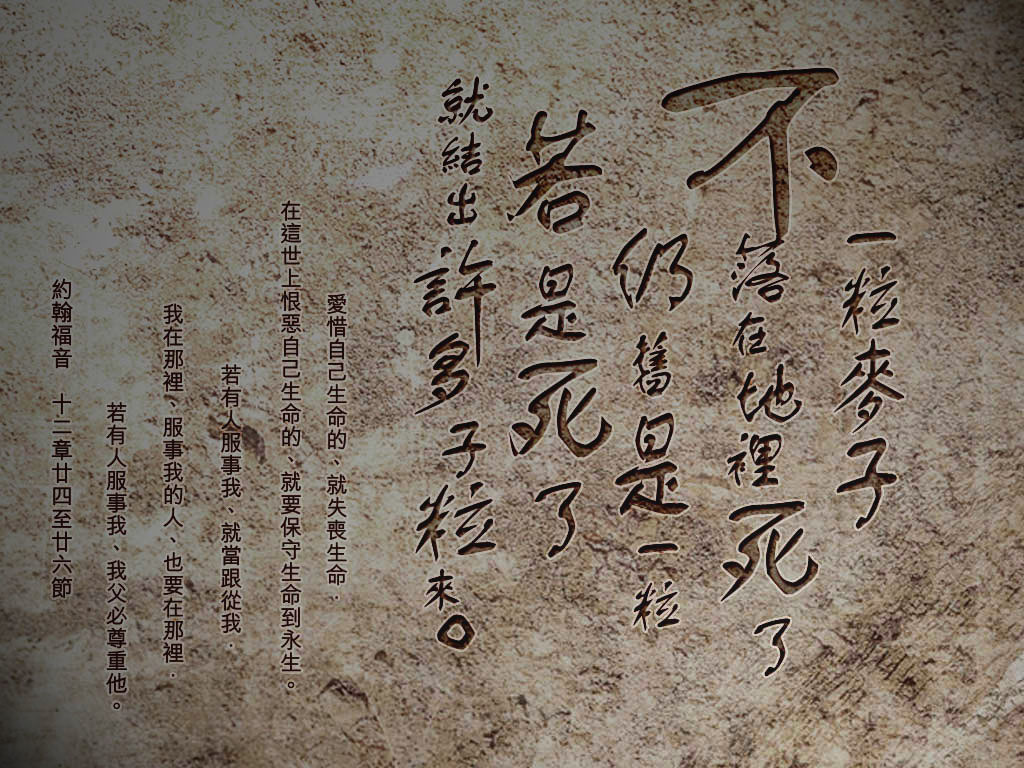 一粒麥子
不落在地裡死了
仍舊是一粒
若是死了
就結出許多子粒來。
愛惜自己生命的、就失喪生命.
在這世上恨惡自己生命的、就要保守生命到永生。
若有人服事我、就當跟從我.
我在那裡、服事我的人、也要在那裡.
若有人服事我、我父必尊重他。
約翰福音 十二章廿四至廿六節